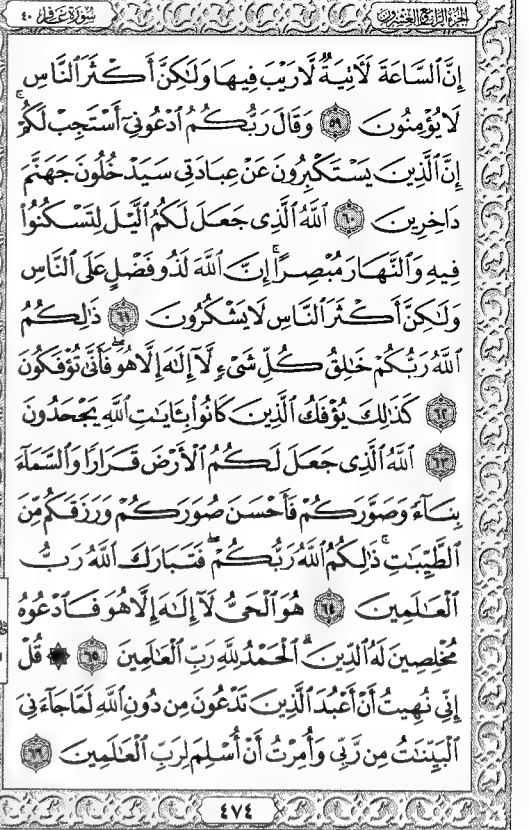 الجزء الرابع والعشرون
سورة غافر ٤٠
إِنَّ ٱلسَّاعَةَ لَأٓتِيَةٌ لَّا رَيْبَ فِيهَا وَلَٰكِنَّ أَكْثَرَ ٱلنَّاسِ
لَا يُؤْمِنُونَ ٥٩ وَقَالَ رَبُّكُمُ ٱدْعُونِىٓ أَسْتَجِبْ لَكُمْ ۚ
إِنَّ ٱلَّذِينَ يَسْتَكْبِرُونَ عَنْ عِبَادَتِى سَيَدْخُلُونَ جَهَنَّمَ
دَاخِرِينَ ٦٠ ٱللَّهُ ٱلَّذِى جَعَلَ لَكُمُ ٱلَّيْلَ لِتَسْكُنُوا۟
فِيهِ وَٱلنَّهَارَ مُبْصِرًا ۚ إِنَّ ٱللَّهَ لَذُو فَضْلٍ عَلَى ٱلنَّاسِ
وَلَٰكِنَّ أَكْثَرَ ٱلنَّاسِ لَا يَشْكُرُونَ ٦١ ذَٰلِكُمُ
ٱللَّهُ رَبُّكُمْ خَٰلِقُ كُلِّ شَىْءٍ لَّآ إِلَٰهَ إِلَّا هُوَ ۖ فَأَنَّىٰ تُؤْفَكُونَ
٦٢ كَذَٰلِكَ يُؤْفَكُ ٱلَّذِينَ كَانُوا۟ بِـَٔايَٰتِ ٱللَّهِ يَجْحَدُونَ
٦٣ ٱللَّهُ ٱلَّذِى جَعَلَ لَكُمُ ٱلْأَرْضَ قَرَارًا وَٱلسَّمَآءَ
بِنَآءً وَصَوَّرَكُمْ فَأَحْسَنَ صُوَرَكُمْ وَرَزَقَكُم مِّنَ
ٱلطَّيِّبَٰتِ ۚ ذَٰلِكُمُ ٱللَّهُ رَبُّكُمْ ۖ فَتَبَارَكَ ٱللَّهُ رَبُّ
ٱلْعَٰلَمِينَ ٦٤ هُوَ ٱلْحَىُّ لَآ إِلَٰهَ إِلَّا هُوَ فَٱدْعُوهُ
مُخْلِصِينَ لَهُ ٱلدِّينَ ۗ ٱلْحَمْدُ لِلَّهِ رَبِّ ٱلْعَٰلَمِينَ ٦٥ ۞ قُلْ
إِنِّى نُهِيتُ أَنْ أَعْبُدَ ٱلَّذِينَ تَدْعُونَ مِن دُونِ ٱللَّهِ لَمَّا جَآءَنِىَ
ٱلْبَيِّنَٰتُ مِن رَّبِّى وَأُمِرْتُ أَنْ أُسْلِمَ لِرَبِّ ٱلْعَٰلَمِينَ ٦٦
٤٧٤